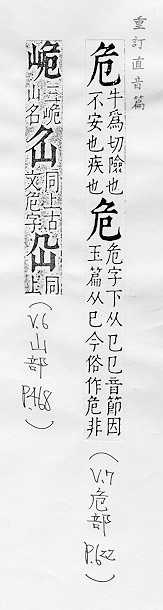 重訂直音篇
危牛為切險也不安也疾也危危字下从巳巳音節因玉篇从巳今俗作危非
(V.7危部P.622)
峗三峗山名㕒同上古文危字 同上
(V.6山部P.468)